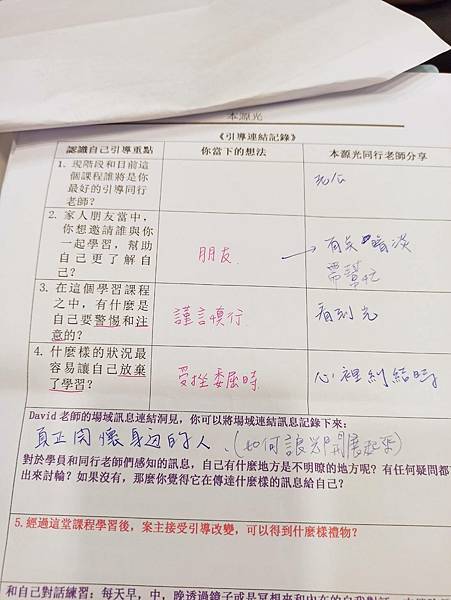 本源光
《引導連結記錄》
認識自己引導重點
你當下的想法
本源光同行老師分享
1. 現階段和目前這
個課程誰將是你
最好的引導同行
老師?
2. 家人朋友當中,
你想邀請誰與你
一起學習,幫助
自己更了解自
己?
朋友
→
暗淡
需幫忙
3. 在這個學習課程
之中,有什麼是
自己要警惕和注
意的?
謹言慎行
看到光
4. 什麼樣的狀況最
容易讓自己放棄
了學習?
受挫委屈時
心裡糾結時
David 老師的場域訊息連結洞見,你可以將場域連結訊息記錄下來:
真正関懷身边的人、(如何讓光開展起來)
對於學員和同行老師們感知的訊息,自己有什麼地方是不明瞭的地方呢?有任何疑問都
出來討輪?如果沒有,那麼你覺得它在傳達什麼樣的訊息給自己?
5.經過這堂課程學習後,案主接受引導改變,可以得到什麼樣禮物?
和自己對話練習:每天早,中,晚透過鏡子或是冥想來和內在的自我對話